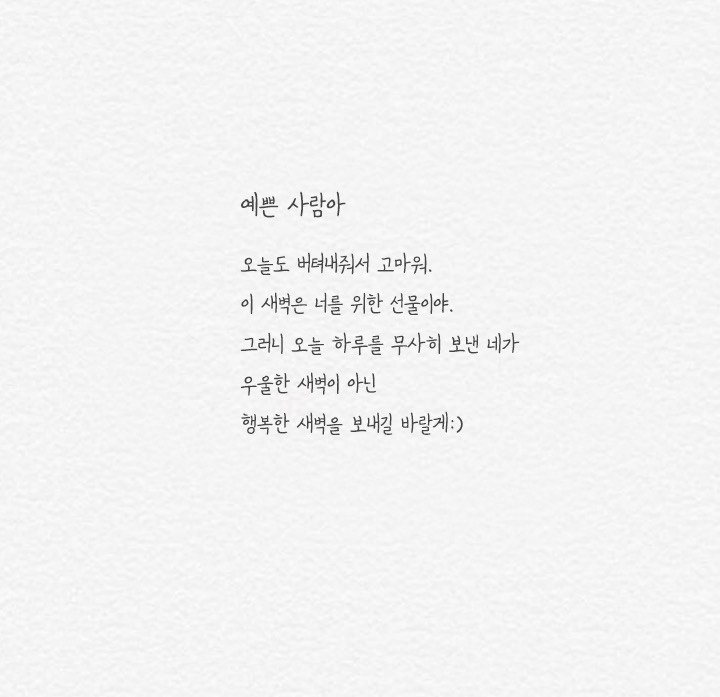 예쁜 사람아
오늘도 버텨내줘서 고마워.
이 새벽은 너를 위한 선물이야.
그러니 오늘 하루를 무사히 보낸 네가
우울한 새벽이 아닌
행복한 새벽을 보내길 바랄게:)